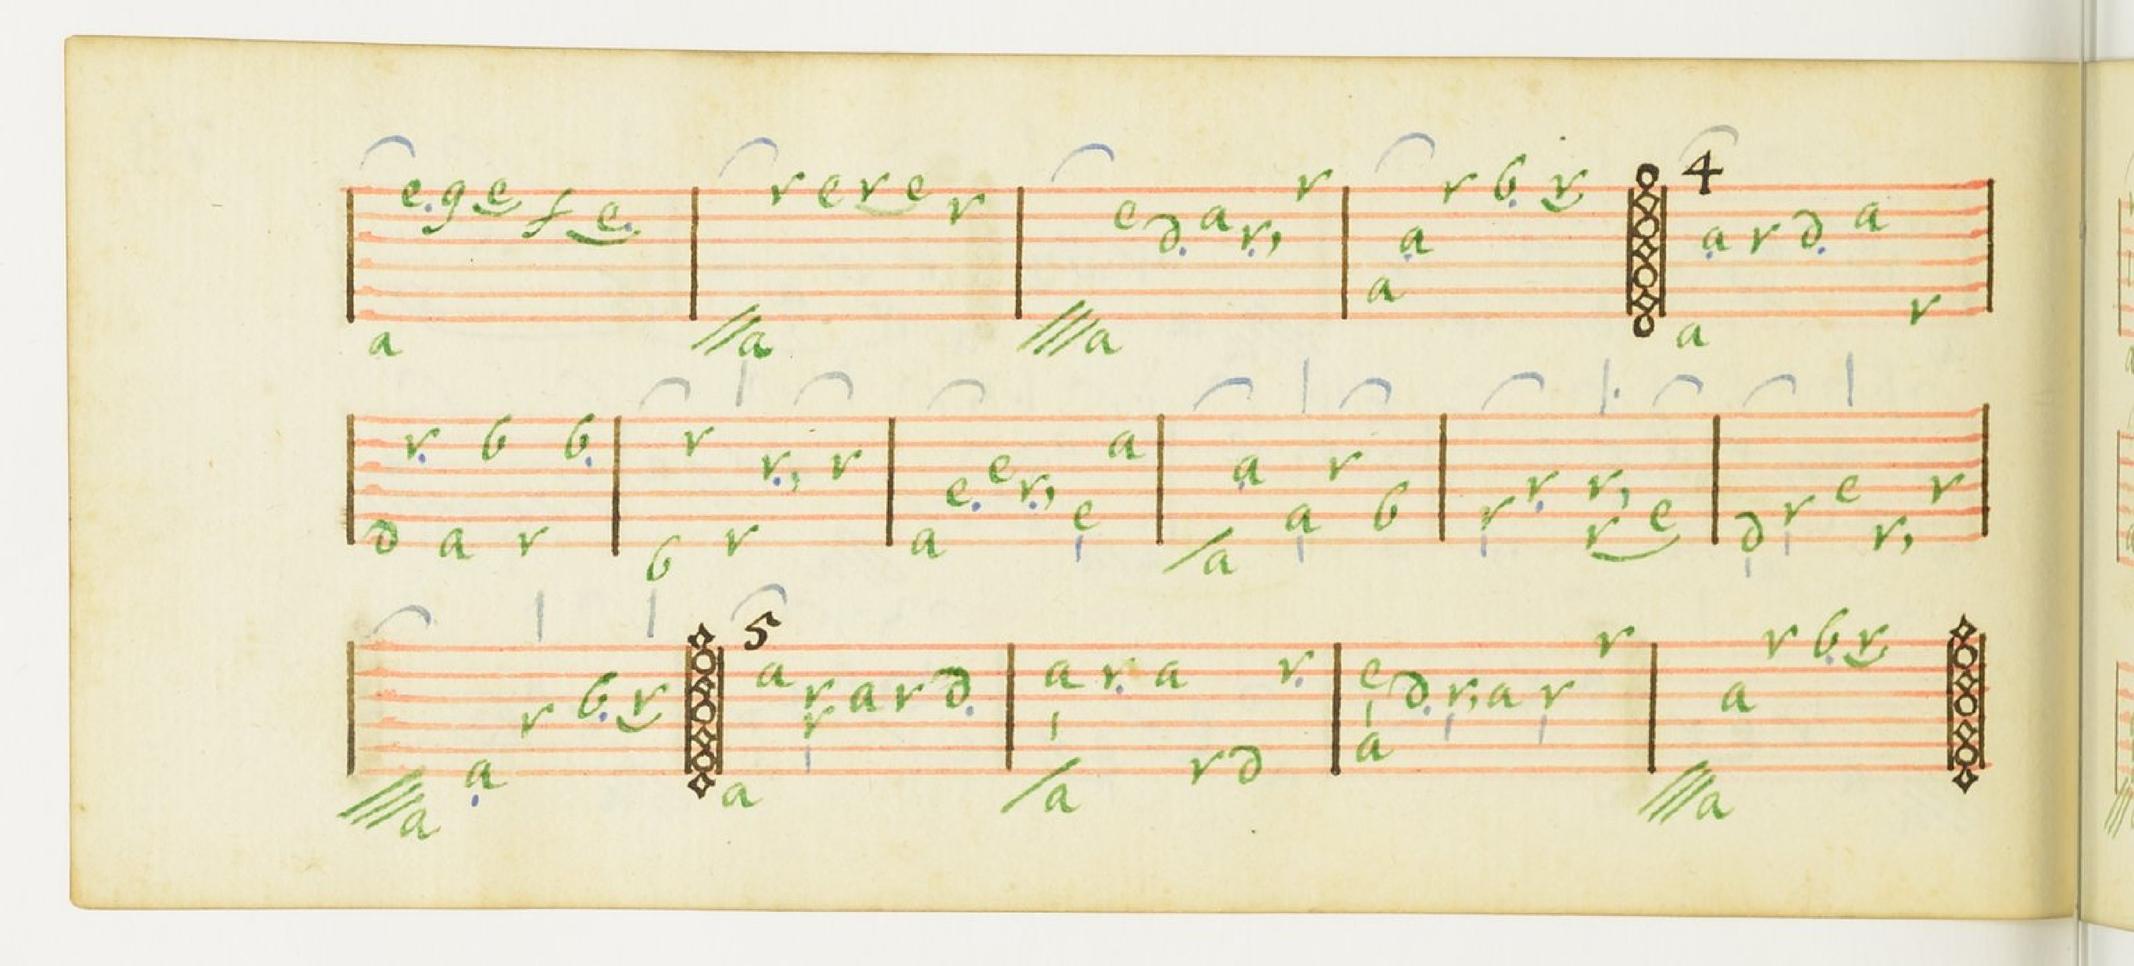 e g e f e r e r e r e d a r r r b r 4 a r d a
a a a a a a r
r b b r r r e e r a a r r r e r
d a r b r a e a a b r r e d r r
r b r 5 a r a r d a r a r e d r a r r a r b r
a a a r a r d a a